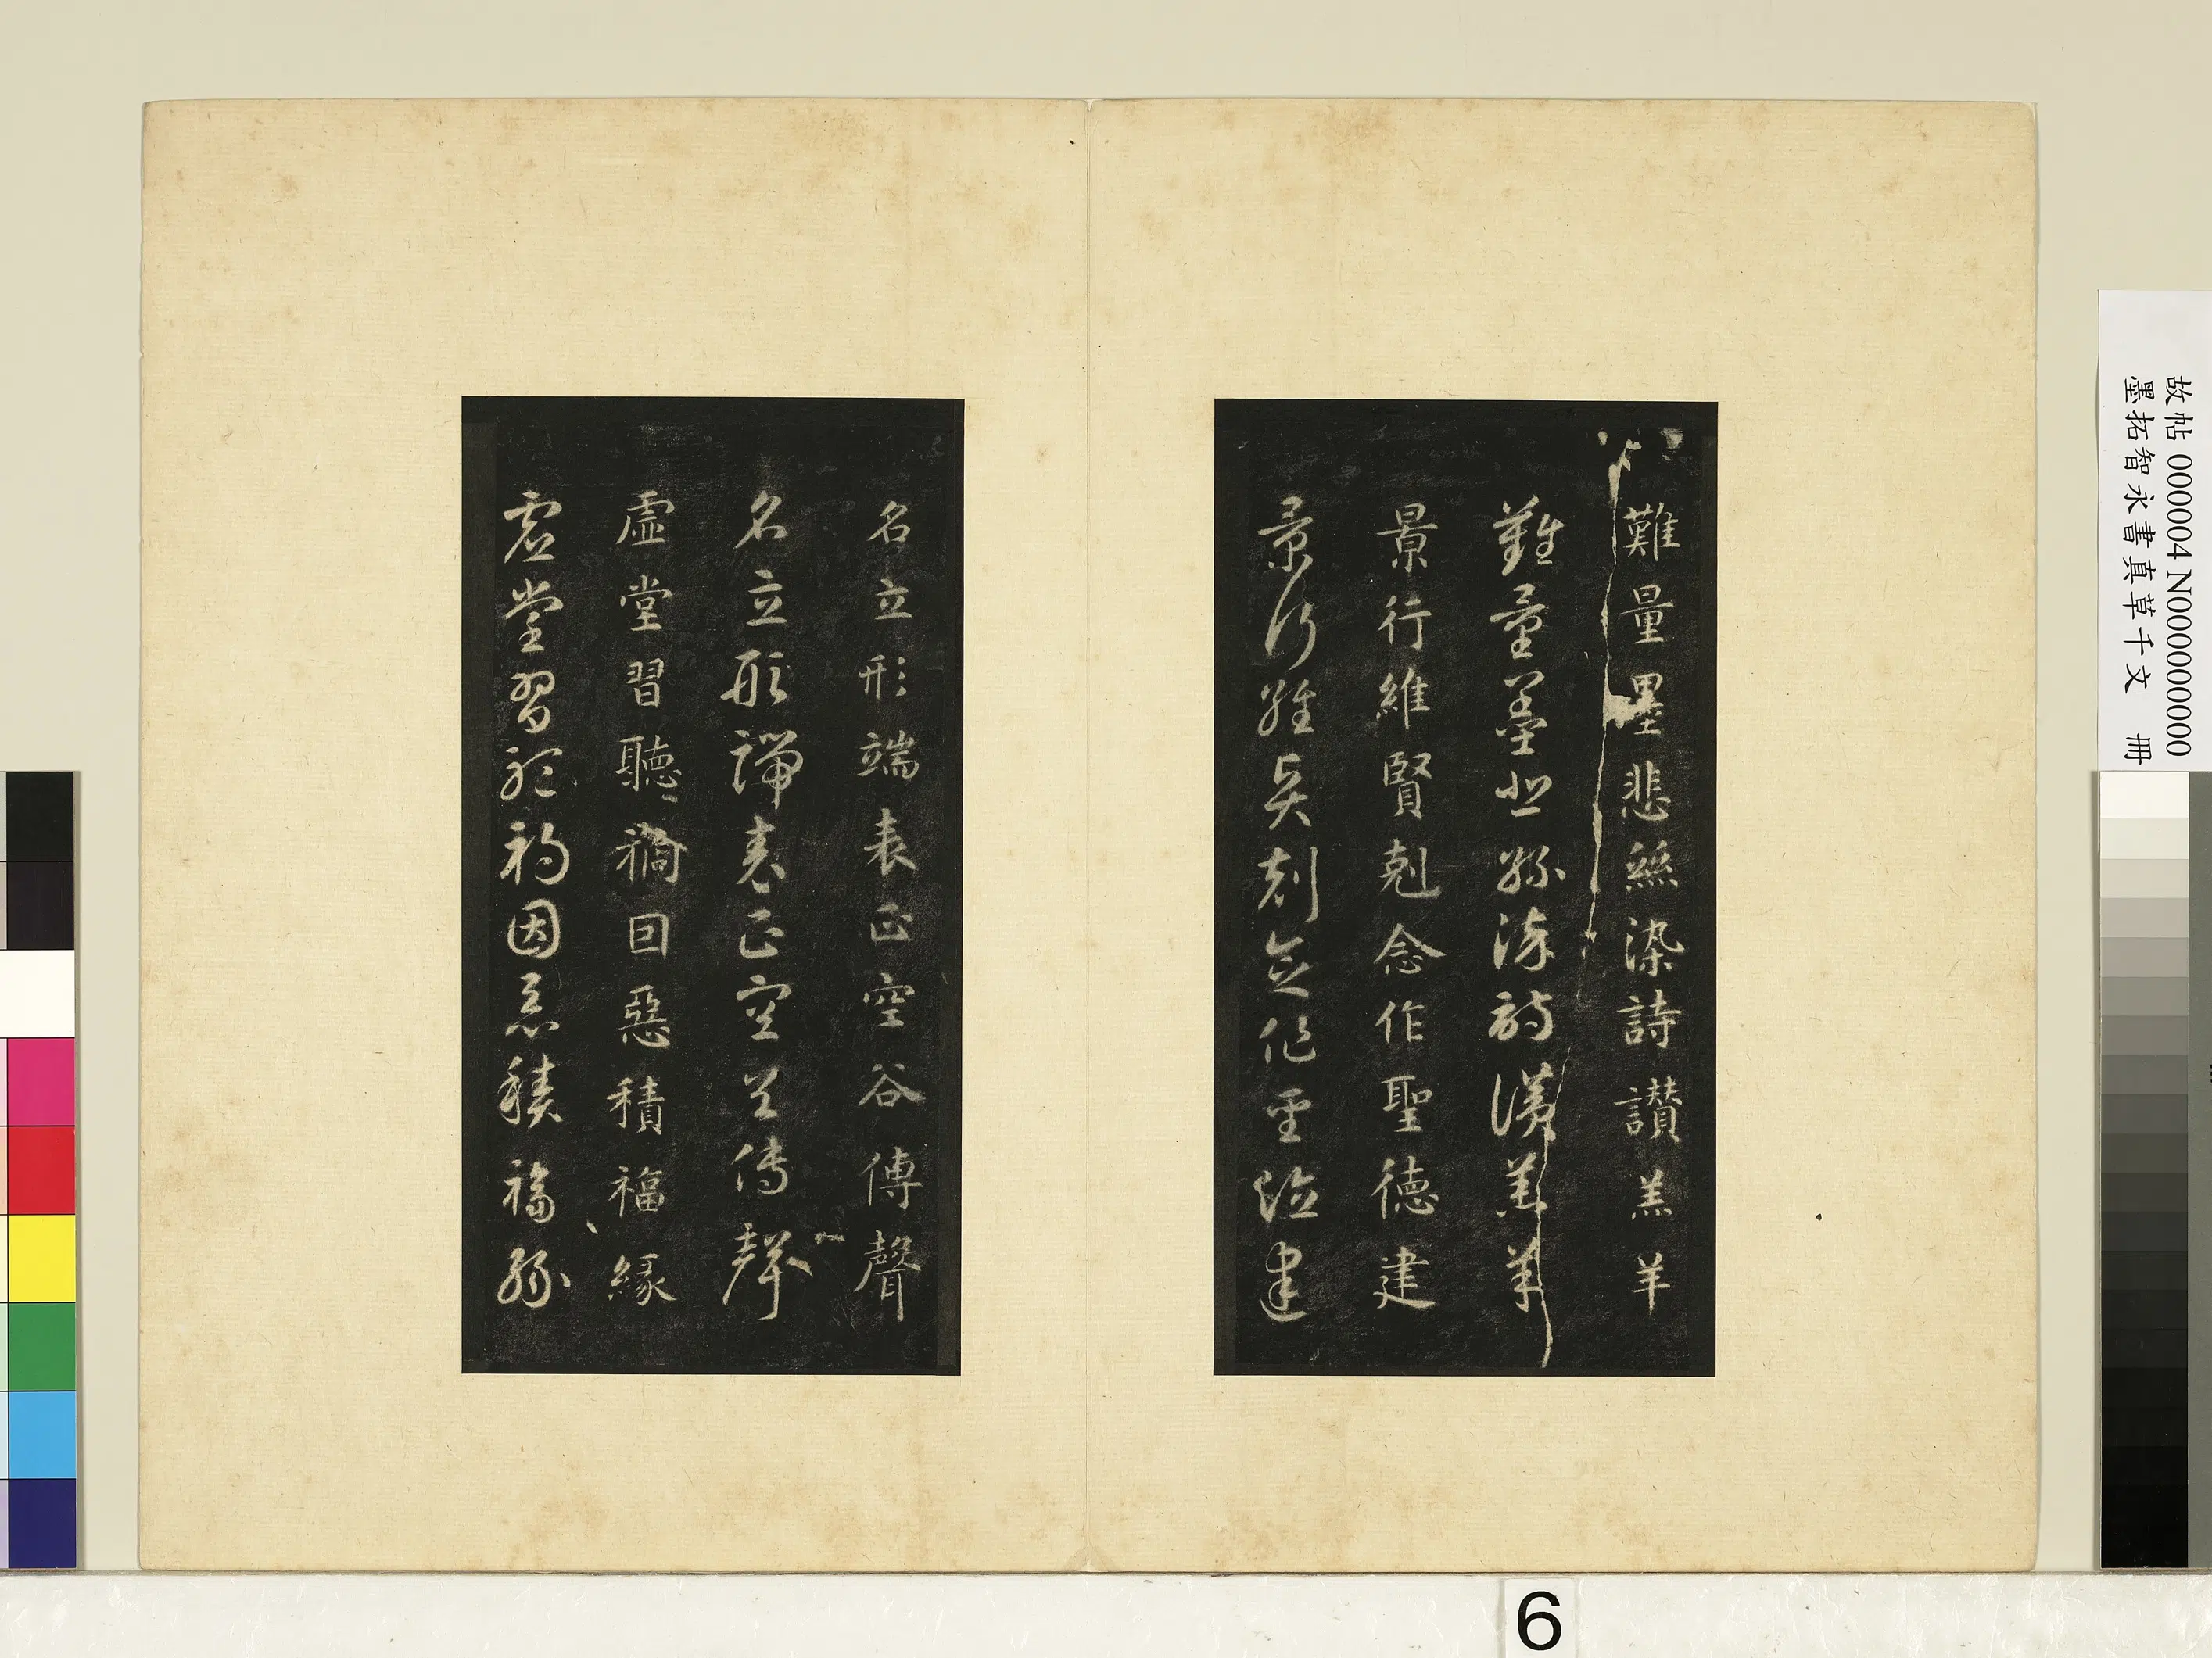 難量墨悲絲染詩讃羔羊
難量墨悲絲染詩讃羔羊
景行維賢剋念作聖德建
景行維賢剋念作聖德建
名立形端表正空谷傳聲
名立形端表正空谷傳聲
虛堂習聽禍因惡積福緣
虛堂習聽禍因惡積福緣
故帖 000004 N000000000
墨拓智永書真草千文 冊
6